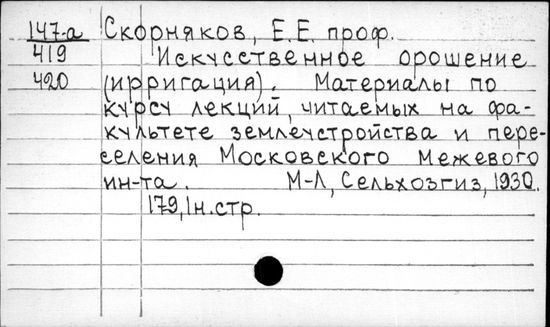 147-а Скорняков, Е.Е. проф.
419 Искусственное орошение
420 (ирригация). Материалы по
курсу лекций, читаемых на фа-
культете землеустройства и пере-
селения Московского Межевого
ин-та. М-Л, Сельхозгиз, 1930.
179, 1н.стр.